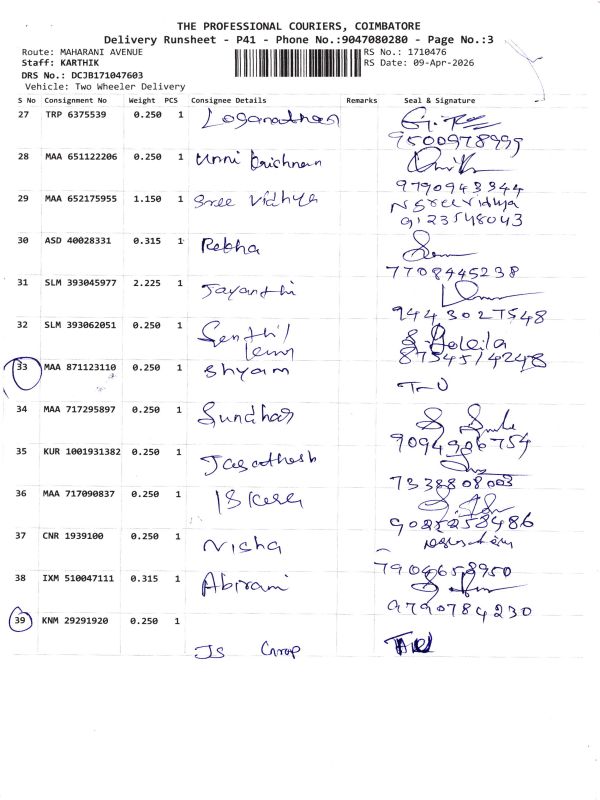 THE PROFESSIONAL COURIERS, COIMBATORE
Delivery Runsheet - P41 - Phone No.:9047080280 - Page No.:3
Route: MAHARANI AVENUE RS No.: 1710476
Staff: KARTHIK RS Date: 09-Apr-2026
DRS No.: DCJB171047603
Vehicle: Two Wheeler Delivery
S No Consignment No Weight PCS Consignee Details Remarks Seal & Signature
27 TRP 6375539 0.250 1 Loganathan
9500978999
28 MAA 651122206 0.250 1 Unni Krishnan
9790943344
29 MAA 652175955 1.150 1 Sree Vidhya NSreevidhya
9123548043
30 ASD 40028331 0.315 1 Rebha
7708445238
31 SLM 393045977 2.225 1 Jayanthi
9443027548
32 SLM 393062051 0.250 1 Senthil
8754514248
33 MAA 871123110 0.250 1 Shyam
34 MAA 717295897 0.250 1 Sundhar
9094906754
35 KUR 1001931382 0.250 1 Jagathesh
7338808003
36 MAA 717090837 0.250 1
37 CNR 1939100 0.250 1 Nisha
7904658950
38 IXM 510047111 0.315 1 Abirami
9790784230
39 KNM 29291920 0.250 1
JS